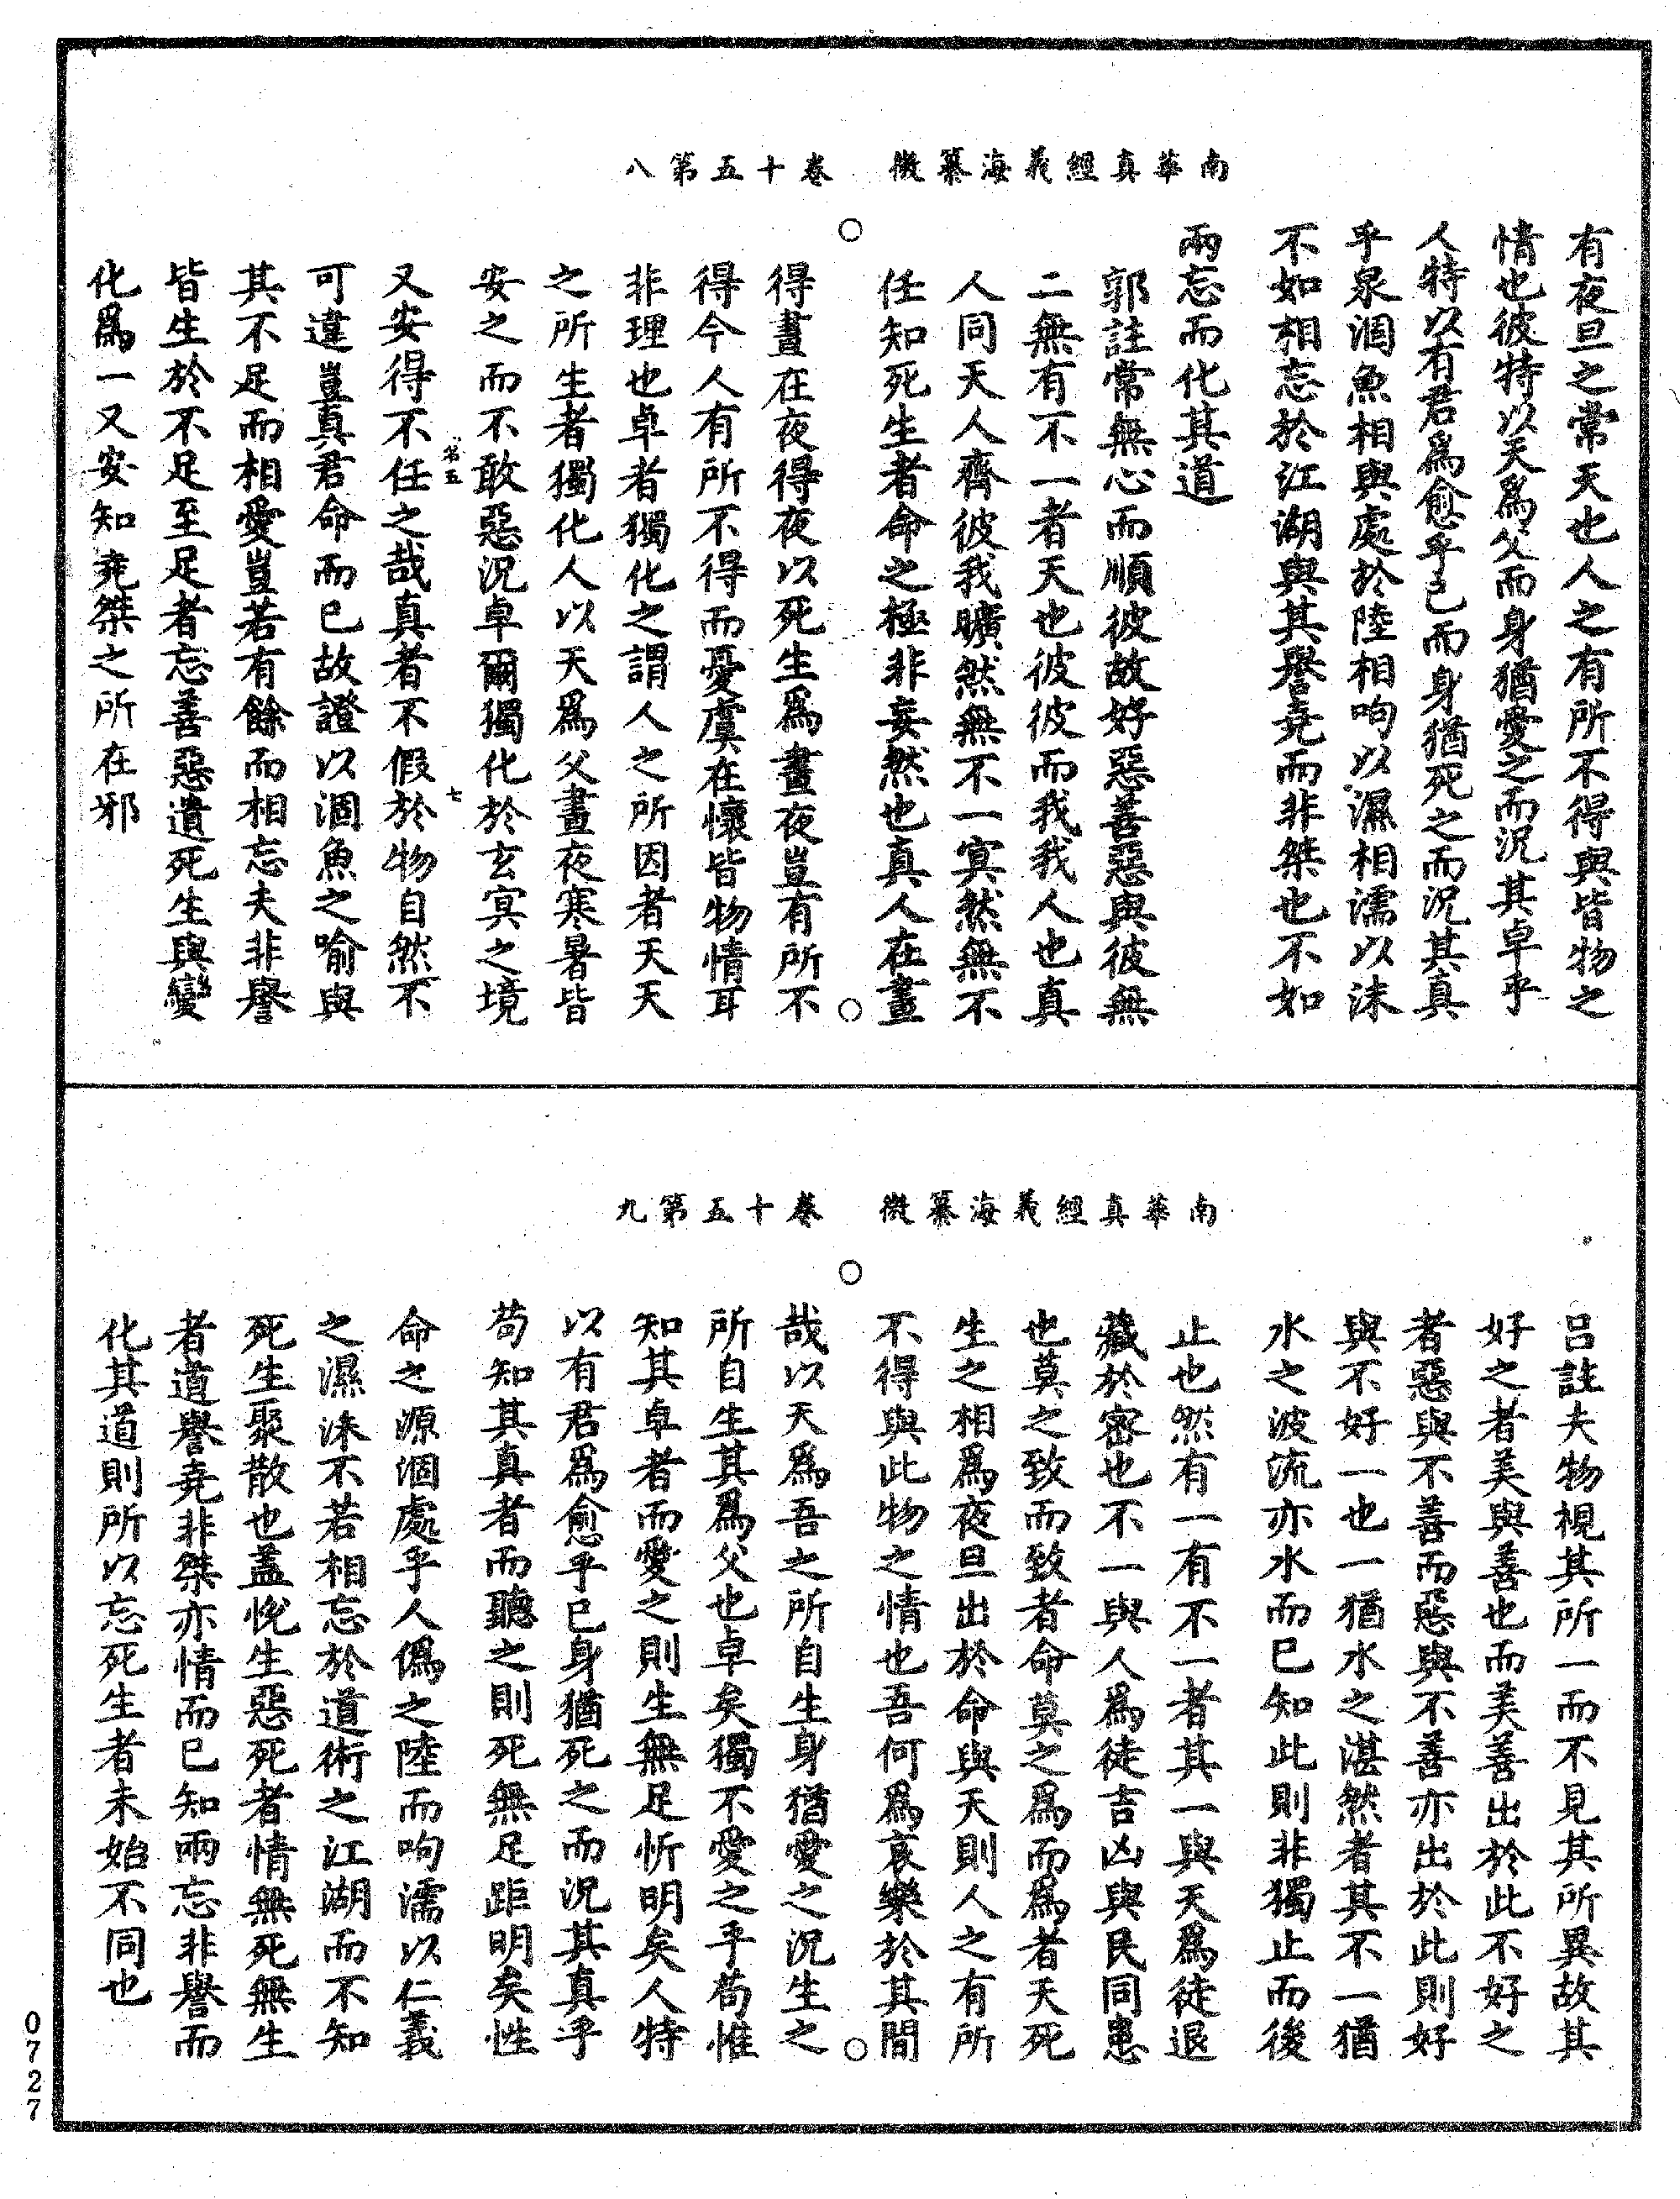 南華真經義海纂微　卷十五第八
有夜旦之常天也人之有所不得與皆物之
情也彼特以天爲父而身猶愛之而況其卓乎
人特以有君爲愈乎己而身猶死之而況其真
乎泉涸魚相與處於陸相呴以濕相濡以沫
不如相忘於江湖與其譽堯而非桀也不如
兩忘而化其道
郭註常無心而順彼故好惡善惡與彼無
二無有不一者天也彼彼而我我人也真
人同天人齊彼我曠然無不一冥然無不
任知死生者命之極非妄然也真人在晝
得晝在夜得夜以死生爲晝夜豈有所不
得今人有所不得而憂虞在懷皆物情耳
非理也卓者獨化之謂人之所因者天天
之所生者獨化人以天爲父晝夜寒暑皆
安之而不敢惡況卓爾獨化於玄冥之境
名五　七
又安得不任之哉真者不假於物自然不
可違豈真君命而已故證以涸魚之喻與
其不足而相愛豈若有餘而相忘夫非譽
皆生於不足至足者忘善惡遺死生與變
化爲一又安知堯桀之所在邪
南華真經義海纂微　卷十五第九
呂註夫物視其所一而不見其所異故其
好之者美與善也而美善出於此不好之
者惡與不善而惡與不善亦出於此則好
與不好一也一猶水之湛然者其不一猶
水之波流亦水而已知此則非獨止而後
止也然有一有不一者其一與天爲徒退
藏於密也不一與人爲徒吉凶與民同患
也莫之致而致者命莫之爲而爲者天死
生之相爲夜旦出於命與天則人之有所
不得與此物之情也吾何爲哀樂於其間
哉以天爲吾之所自生身猶愛之況生之
所自生其爲父也卓矣獨不愛之乎苟惟
知其卓者而愛之則生無足忻明矣人特
以有君爲愈乎已身猶死之而況其真乎
苟知其真者而聽之則死無足距明矣性
命之源涸處乎人僞之陸而呴濡以仁義
之濕沫不若相忘於道術之江湖而不知
死生聚散也蓋悅生惡死者情無死無生
者道譽堯非桀亦情而已知兩忘非譽而
化其道則所以忘死生者未始不同也
0727